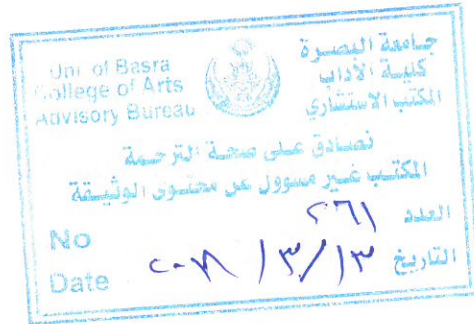 Uni of Basra
College of Arts
Advisory Bureau
جامعة البصرة
كلية الآداب
المكتب الاستشاري
نصادق على صحة الترجمة
المكتب غير مسوول عن محتوى الوثيقة
العدد ٢٦١
No
التاريخ ١٣/٣/٢٠١٨
Date